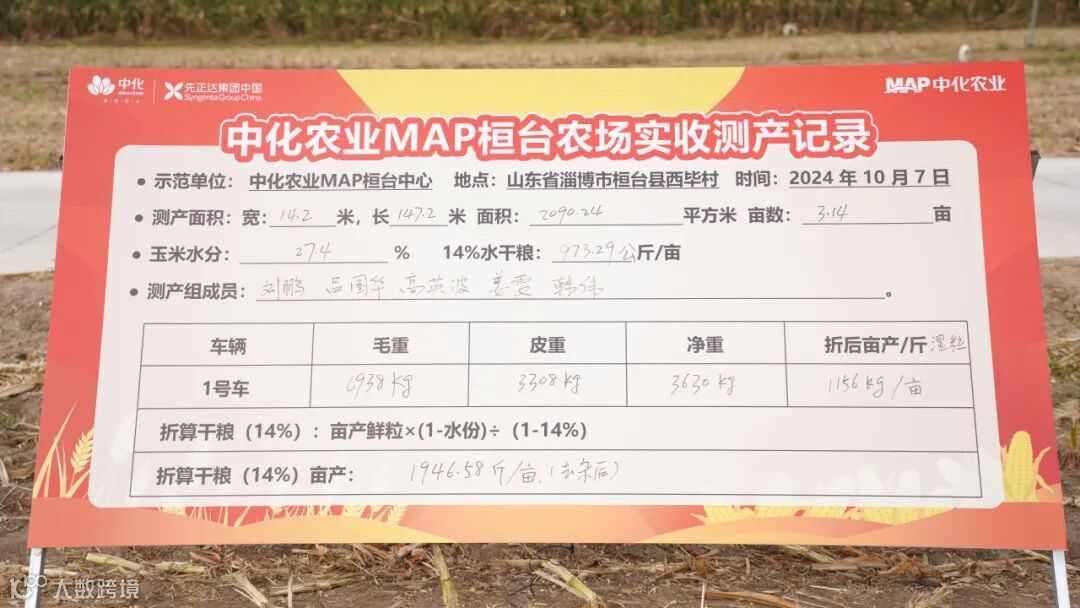 中化 先正达集团中国 MAP中化农业
Syngenta Group China
中化农业MAP桓台农场实收测产记录
• 示范单位： 中化农业MAP桓台中心 地点：山东省淄博市桓台县西毕村 时间：2024 年 10 月 7 日
• 测产面积：宽：14.2 米，长 147.2 米 面积： 2090.24 平方米 亩数： 3.14 亩
• 玉米水分： 27.4 % 14%水干粮：973.29公斤/亩
• 测产组成员： 刘鹏 吕国华 高英波 姜雯 韩伟 。
车辆 毛重 皮重 净重 折后亩产/斤 湿粒
1号车 6938 kg 3308 kg 3630 kg 1156 kg/亩
折算干粮（14%）：亩产鲜粒×(1-水份)÷（1-14%）
折算干粮（14%）亩产： 1946.58 斤/亩.（去杂后）
大数跨境